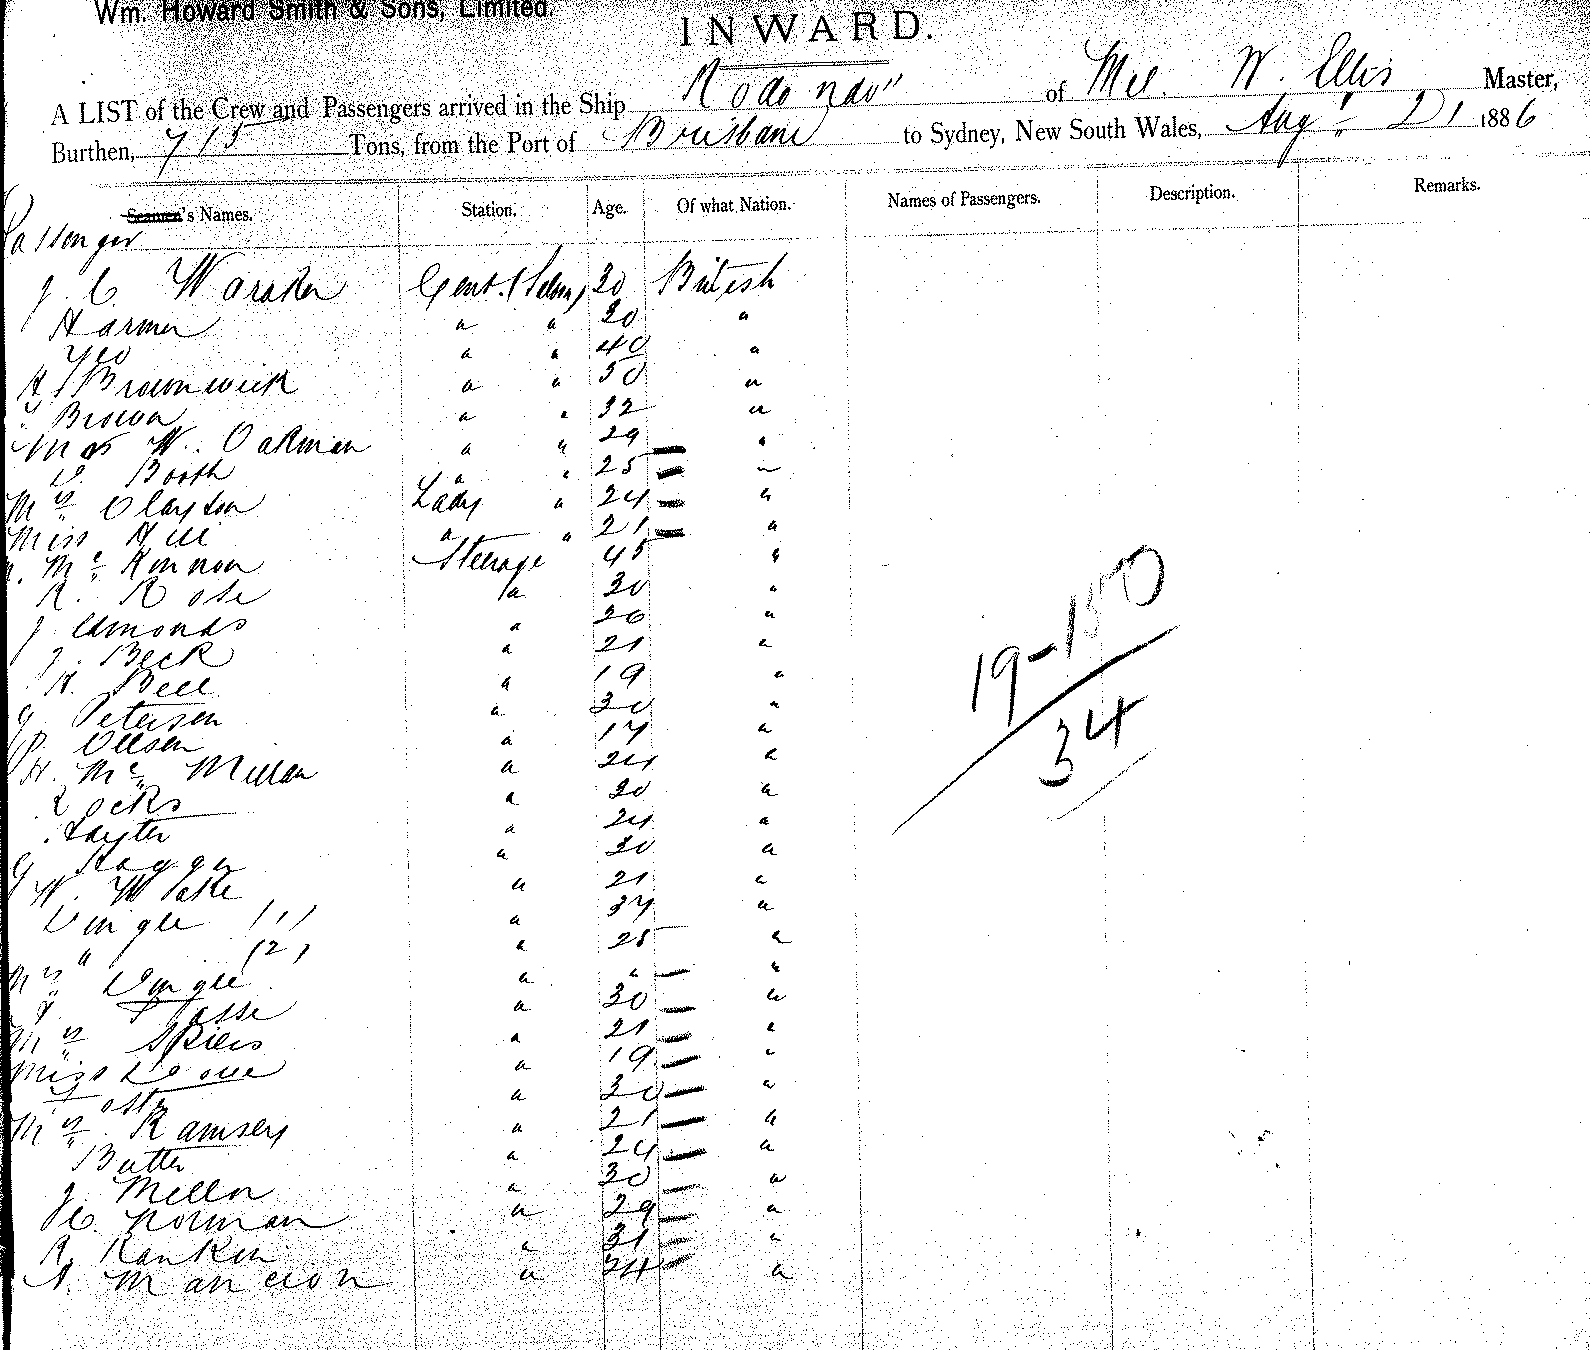 Wm. Howard Smith & Sons, Limited.
INWARD.
A LIST of the Crew and Passengers arrived in the Ship Rodondo of Mel. W. Ellis Master,
Burthen, 715 Tons, from the Port of Brisbane to Sydney, New South Wales, Augt. 21 1886
Seamen's Names. Station. Age. Of what Nation. Names of Passengers. Description. Remarks.
Passenger
J. C. Waraker 30 British
Harmer " " 20 "
Yeo " " 40 "
H Brownweick " " 50 "
Brown " " 32 "
W. Oakman " " 29 "
D. Booth " " 25 "
Mrs Clayton Lady " 24 "
Miss Hill " " 21 "
Mc Kinnon Steerage 45 "
R. Rose " 30 "
J Edmonds " 20 "
J. Beck " 21 "
H. Bell " 19 "
G Petersen " 30 "
P. Ollsen " 17 "
H. Mc Millan " 24 "
Locks " 20 "
Layter " 24 "
G " 30 "
W. Wake " 21 "
Dingle (1) " 37 "
" (2) " 25 "
Mrs Dingle " " "
" 30 "
Mrs Skiers " 21 "
Miss " 19 "
" 30 "
Mrs Ramsey " 21 "
Butter " 24 "
J. Mellor " 30 "
C. Norman " 29 "
R. Rankin " 31 "
A. " 24 "
19-150
34